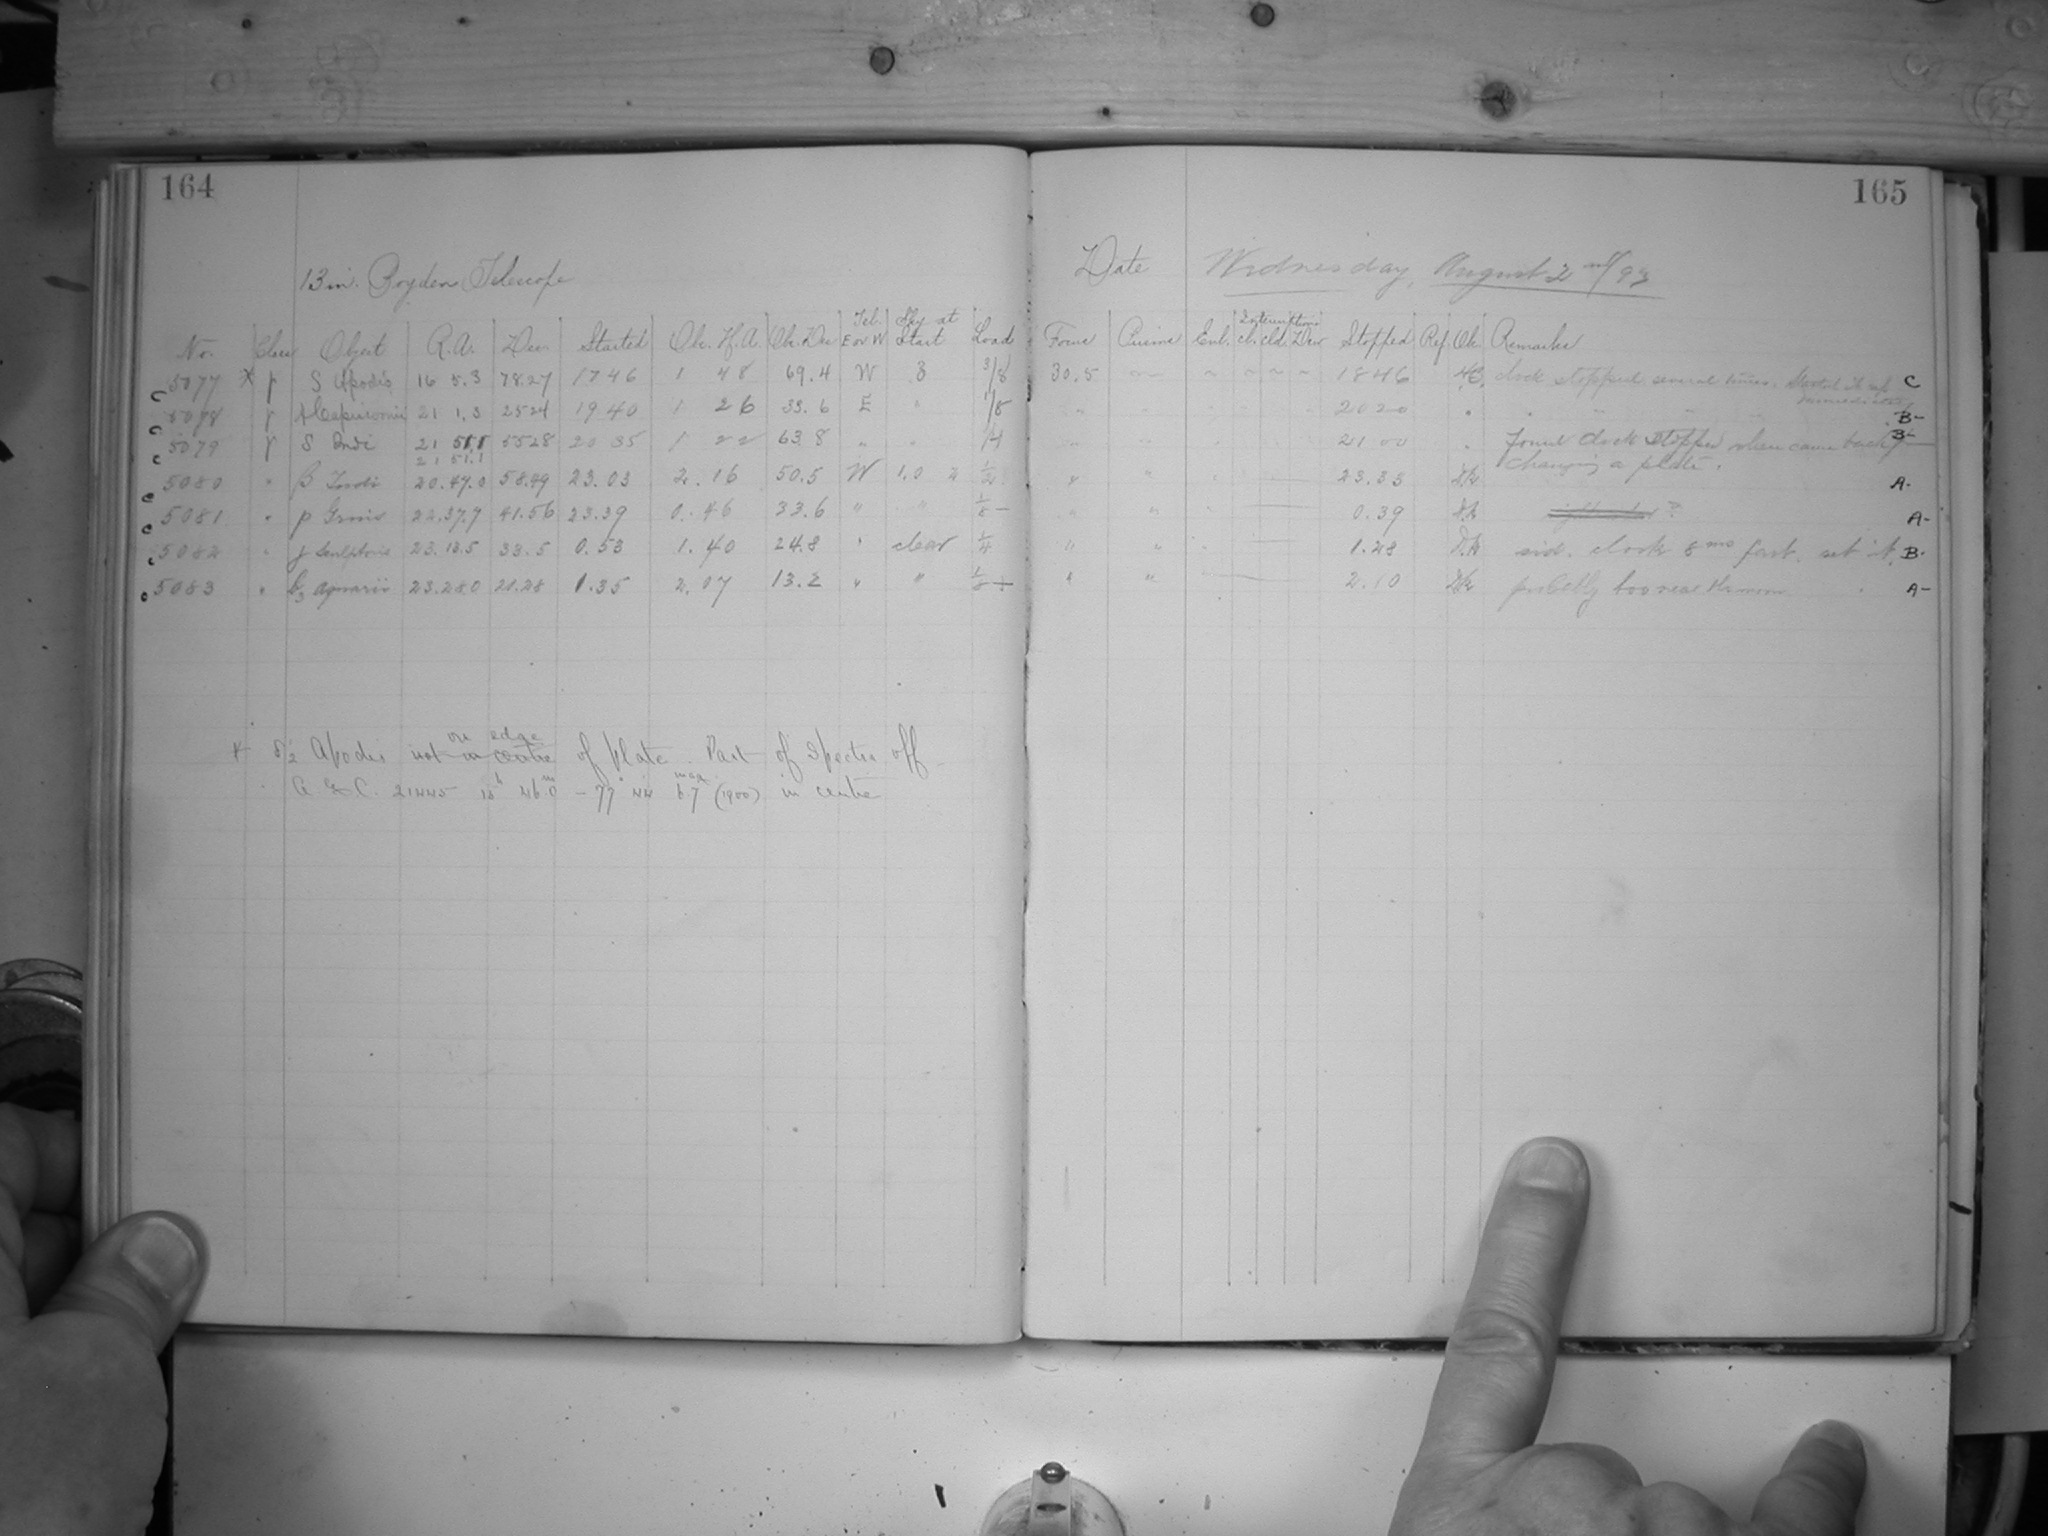 164
165
13 in. Boyden Telescope
Date Wednesday, August 2nd/93
No. Class Object R.A. Dec. Started Ob. H.A. Ob. Dec Tel. E or W Sky at Start Load Focus Prisms Enl. Interruptions Ch. Cld. Dew Stopped Ref. Ob. Remarks
5077 * γ S Apodis 16 5.3 78.27 17 46 1 48 69.4 W 3 3/8 30.5 18 46 clock stopped several times. Started it C
c 5078 γ A Capricorni 21 1.3 25 24 19 40 1 26 33.6 E " 1/8 " 20 20 " B-
c 5079 γ S Indi 21 51.1 55 28 20 35 1 22 63.8 " " 1/4 " 21 00 " Found clock stopped when came back B-
21 51.1 changing a plate.
c 5080 " β Indi 20.47.0 58.49 23.03 2.16 50.5 W 1.0 1/2 " " 23.33 A-
c 5081 " ρ Gruis 22.37.7 41.56 23.39 0.46 33.6 " " 1/8 - " " 0.39 A-
c 5082 " γ Sculptoris 23.13.5 33.5 0.53 1.40 24.8 " clear 1/4 " " 1.28 sid. clock 8 ms fast. set it. B-
c 5083 " b3 Aquarii 23.28.0 21.28 1.35 2.07 13.2 " " 1/8 + " " 2.10 probably too near the moon A-
* δ2 Apodis not in centre on edge of plate. Part of Spectra off
A.G.C. 21445 15h 46m.0 -77° 44 6.7 mag (1900) in centre